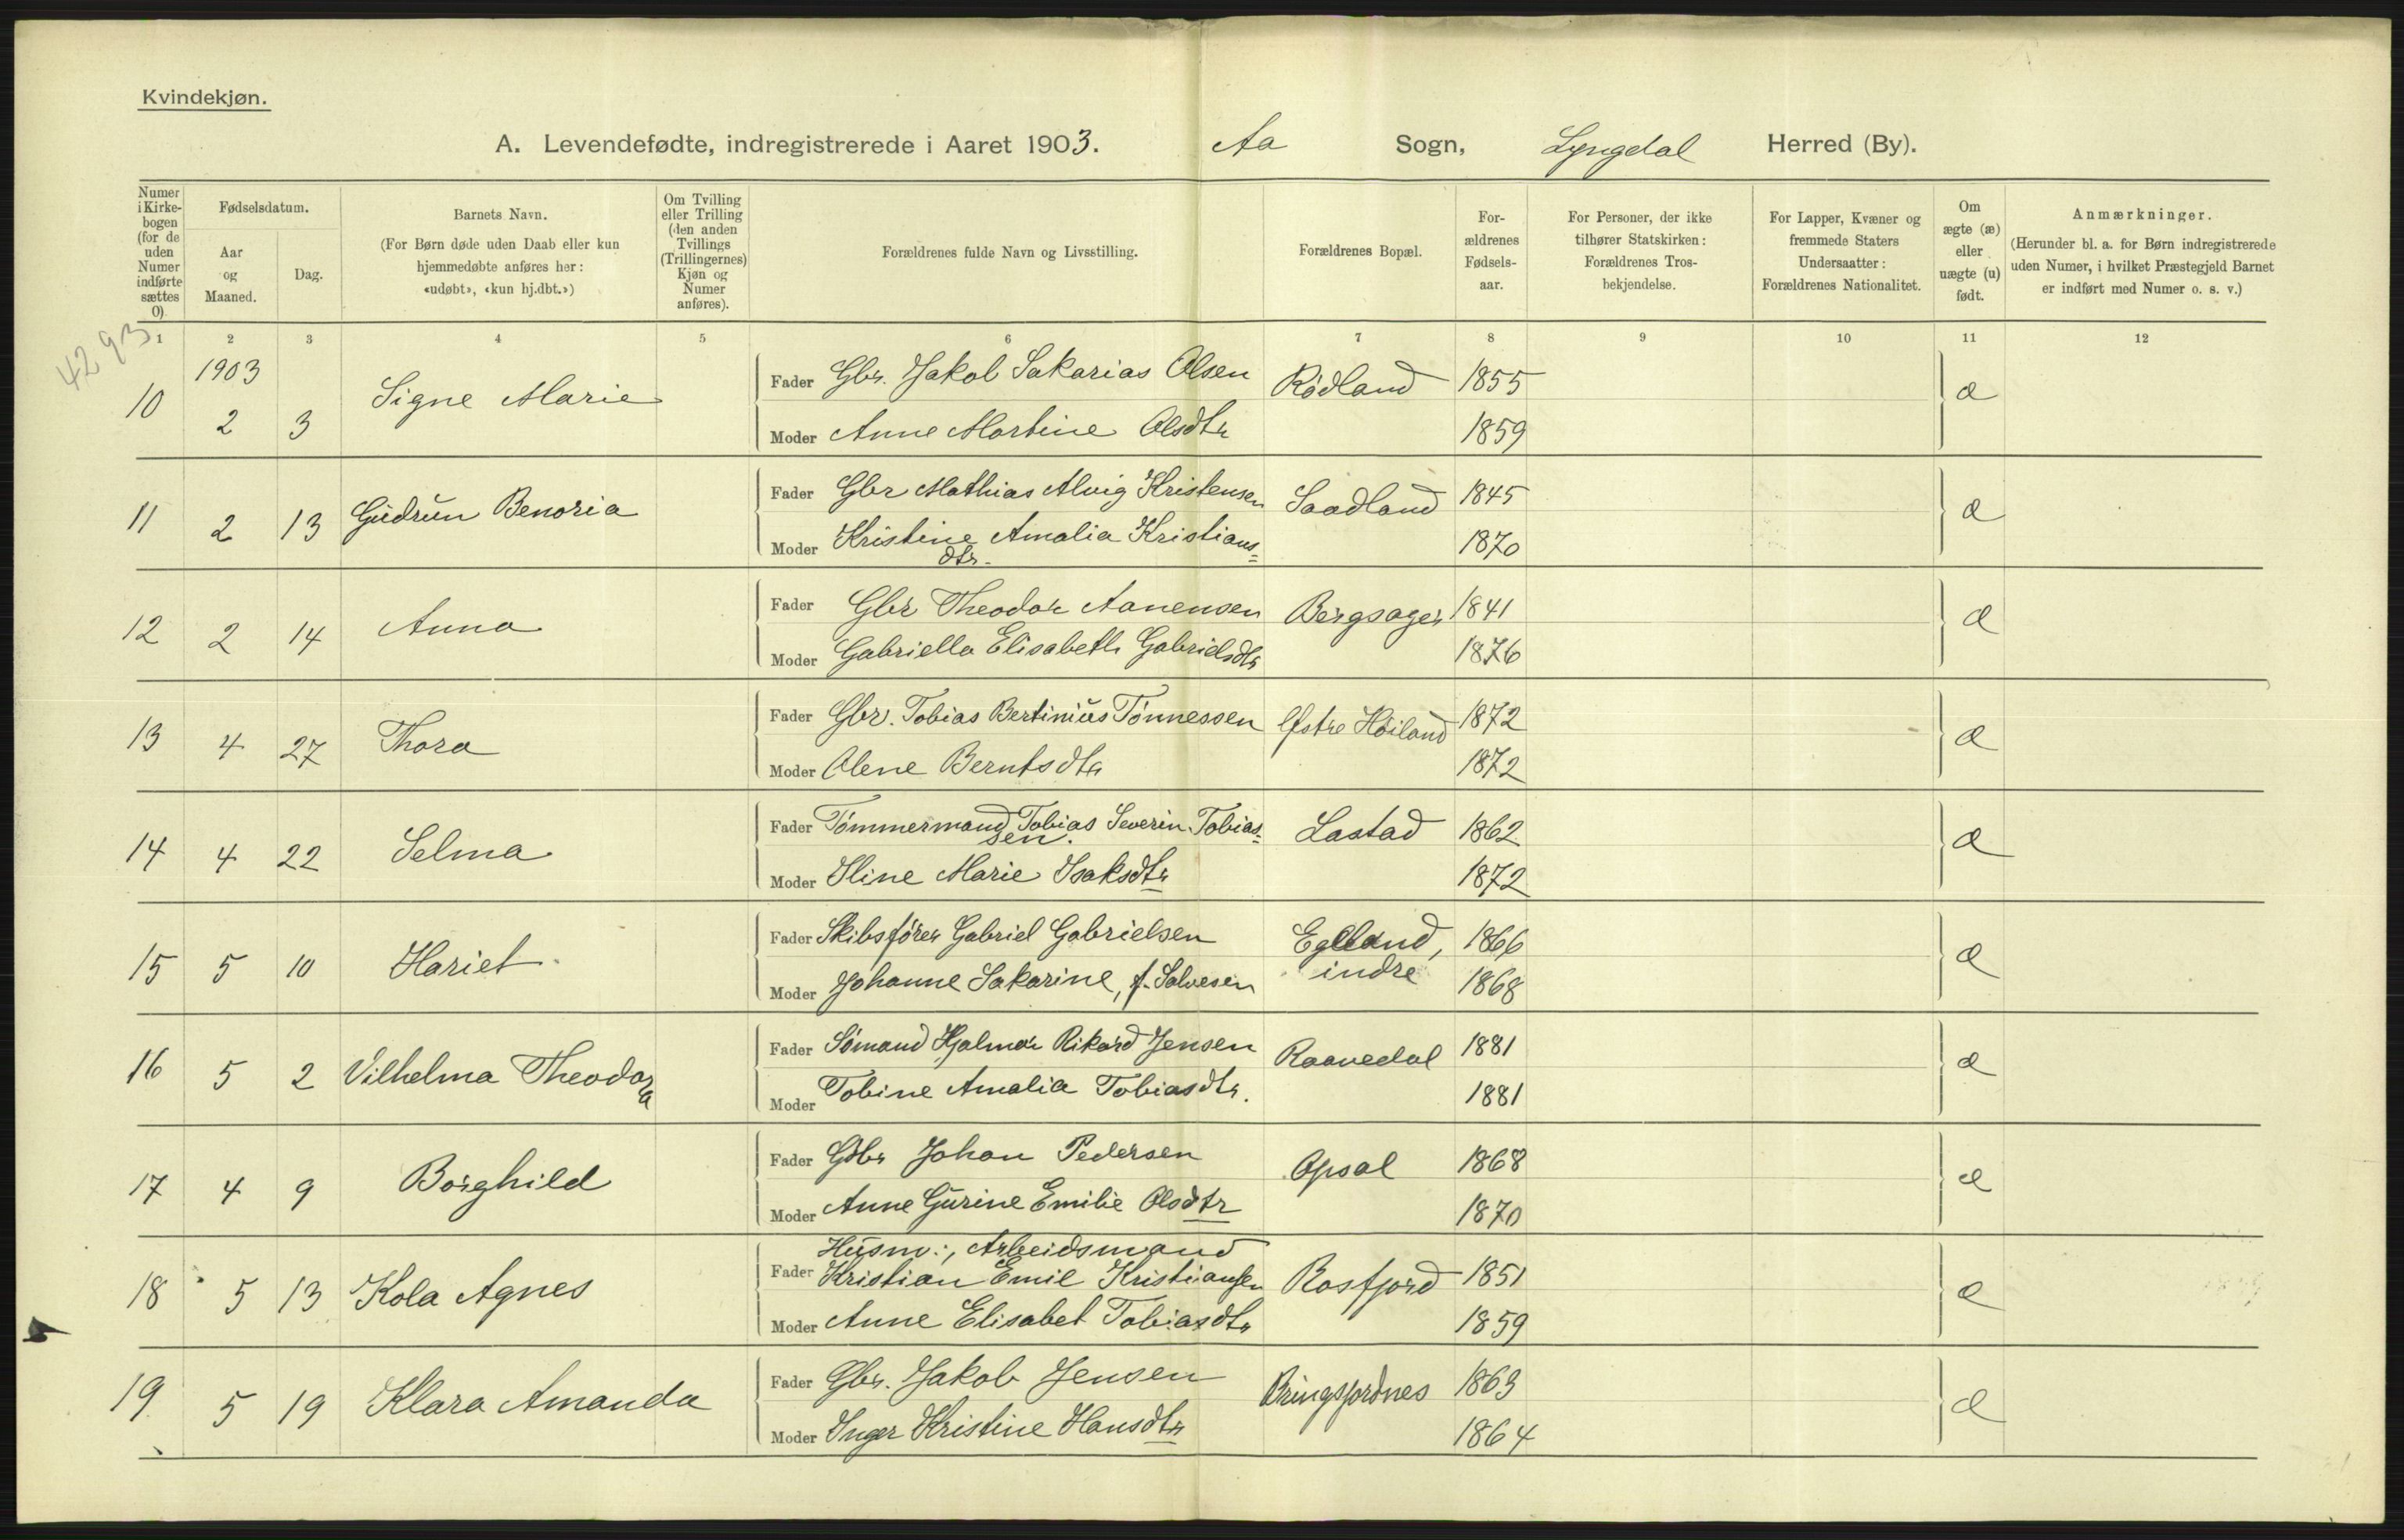 Kvindekjøn.
A. Levendefødte, indregistrerede i Aaret 1903. Aa Sogn, Lyngdal Herred (By).
Numer i Kirkebogen (for de uden Numer indførte sættes 0).
Fødselsdatum.
Aar og Maaned.
Dag.
Barnets Navn.
(For Børn døde uden Daab eller kun hjemmedøbte anføres her: «udøbt», «kun hj.dbt.»)
Om Tvilling eller Trilling (den anden Tvillings (Trillingernes) Kjøn og Numer anføres).
Forældrenes fulde Navn og Livsstilling.
Forældrenes Bopæl.
Forældrenes Fødselsaar.
For Personer, der ikke tilhører Statskirken: Forældrenes Trosbekjendelse.
For Lapper, Kvæner og fremmede Staters Undersaatter: Forældrenes Nationalitet.
Om ægte (æ) eller uægte (u) født.
Anmærkninger.
(Herunder bl. a. for Børn indregistrerede uden Numer, i hvilket Præstegjeld Barnet er indført med Numer o. s. v.)
1 2 3 4 5 6 7 8 9 10 11 12
4293
1903
10 2 3 Signe Marie Fader Gbr. Jakob Sakarias Olsen Rødland 1855 æ
Moder Anne Martine Olsdtr 1859
11 2 13 Gudrun Benoria Fader Gbr Mathias Alvig Kristensen Saadland 1845 æ
Moder Kristine Amalia Kristians=
dtr. 1870
12 2 14 Anna Fader Gbr Theodor Aanensen Bergsager 1841 æ
Moder Gabriella Elisabeth Gabrielsdtr 1876
13 4 27 Thora Fader Gbr. Tobias Bertinius Tönnessen Östre Höiland 1872 æ
Moder Olene Berntsdtr 1872
14 4 22 Selma Fader Tömmermand Tobias Severin Tobias=
sen. Lastad 1862 æ
Moder Iline Marie Isaksdtr 1872
15 5 10 Hariet Fader Skibsfører Gabriel Gabrielsen Egeland, 1866 æ
Moder Johanne Sakarine, f. Salvesen indre 1868
16 5 2 Vilhelma Theodora Fader Sömand Hjalmar Rikard Jensen Raavedal 1881 æ
Moder Tobine Amalia Tobiasdtr. 1881
17 4 9 Borghild Fader Gbr Johan Pedersen Opsal 1868 æ
Moder Anne Gurine Emilie Olsdtr 1870
Husm:, Arbeidsmand
18 5 13 Kola Agnes Fader Kristian Emil Kristiansen Rosfjord 1851 æ
Moder Anne Elisabet Tobiasdtr 1859
19 5 19 Klara Amanda Fader Gbr. Jakob Jensen Bringsjordnes 1863 æ
Moder Inger Kristine Hansdtr 1864